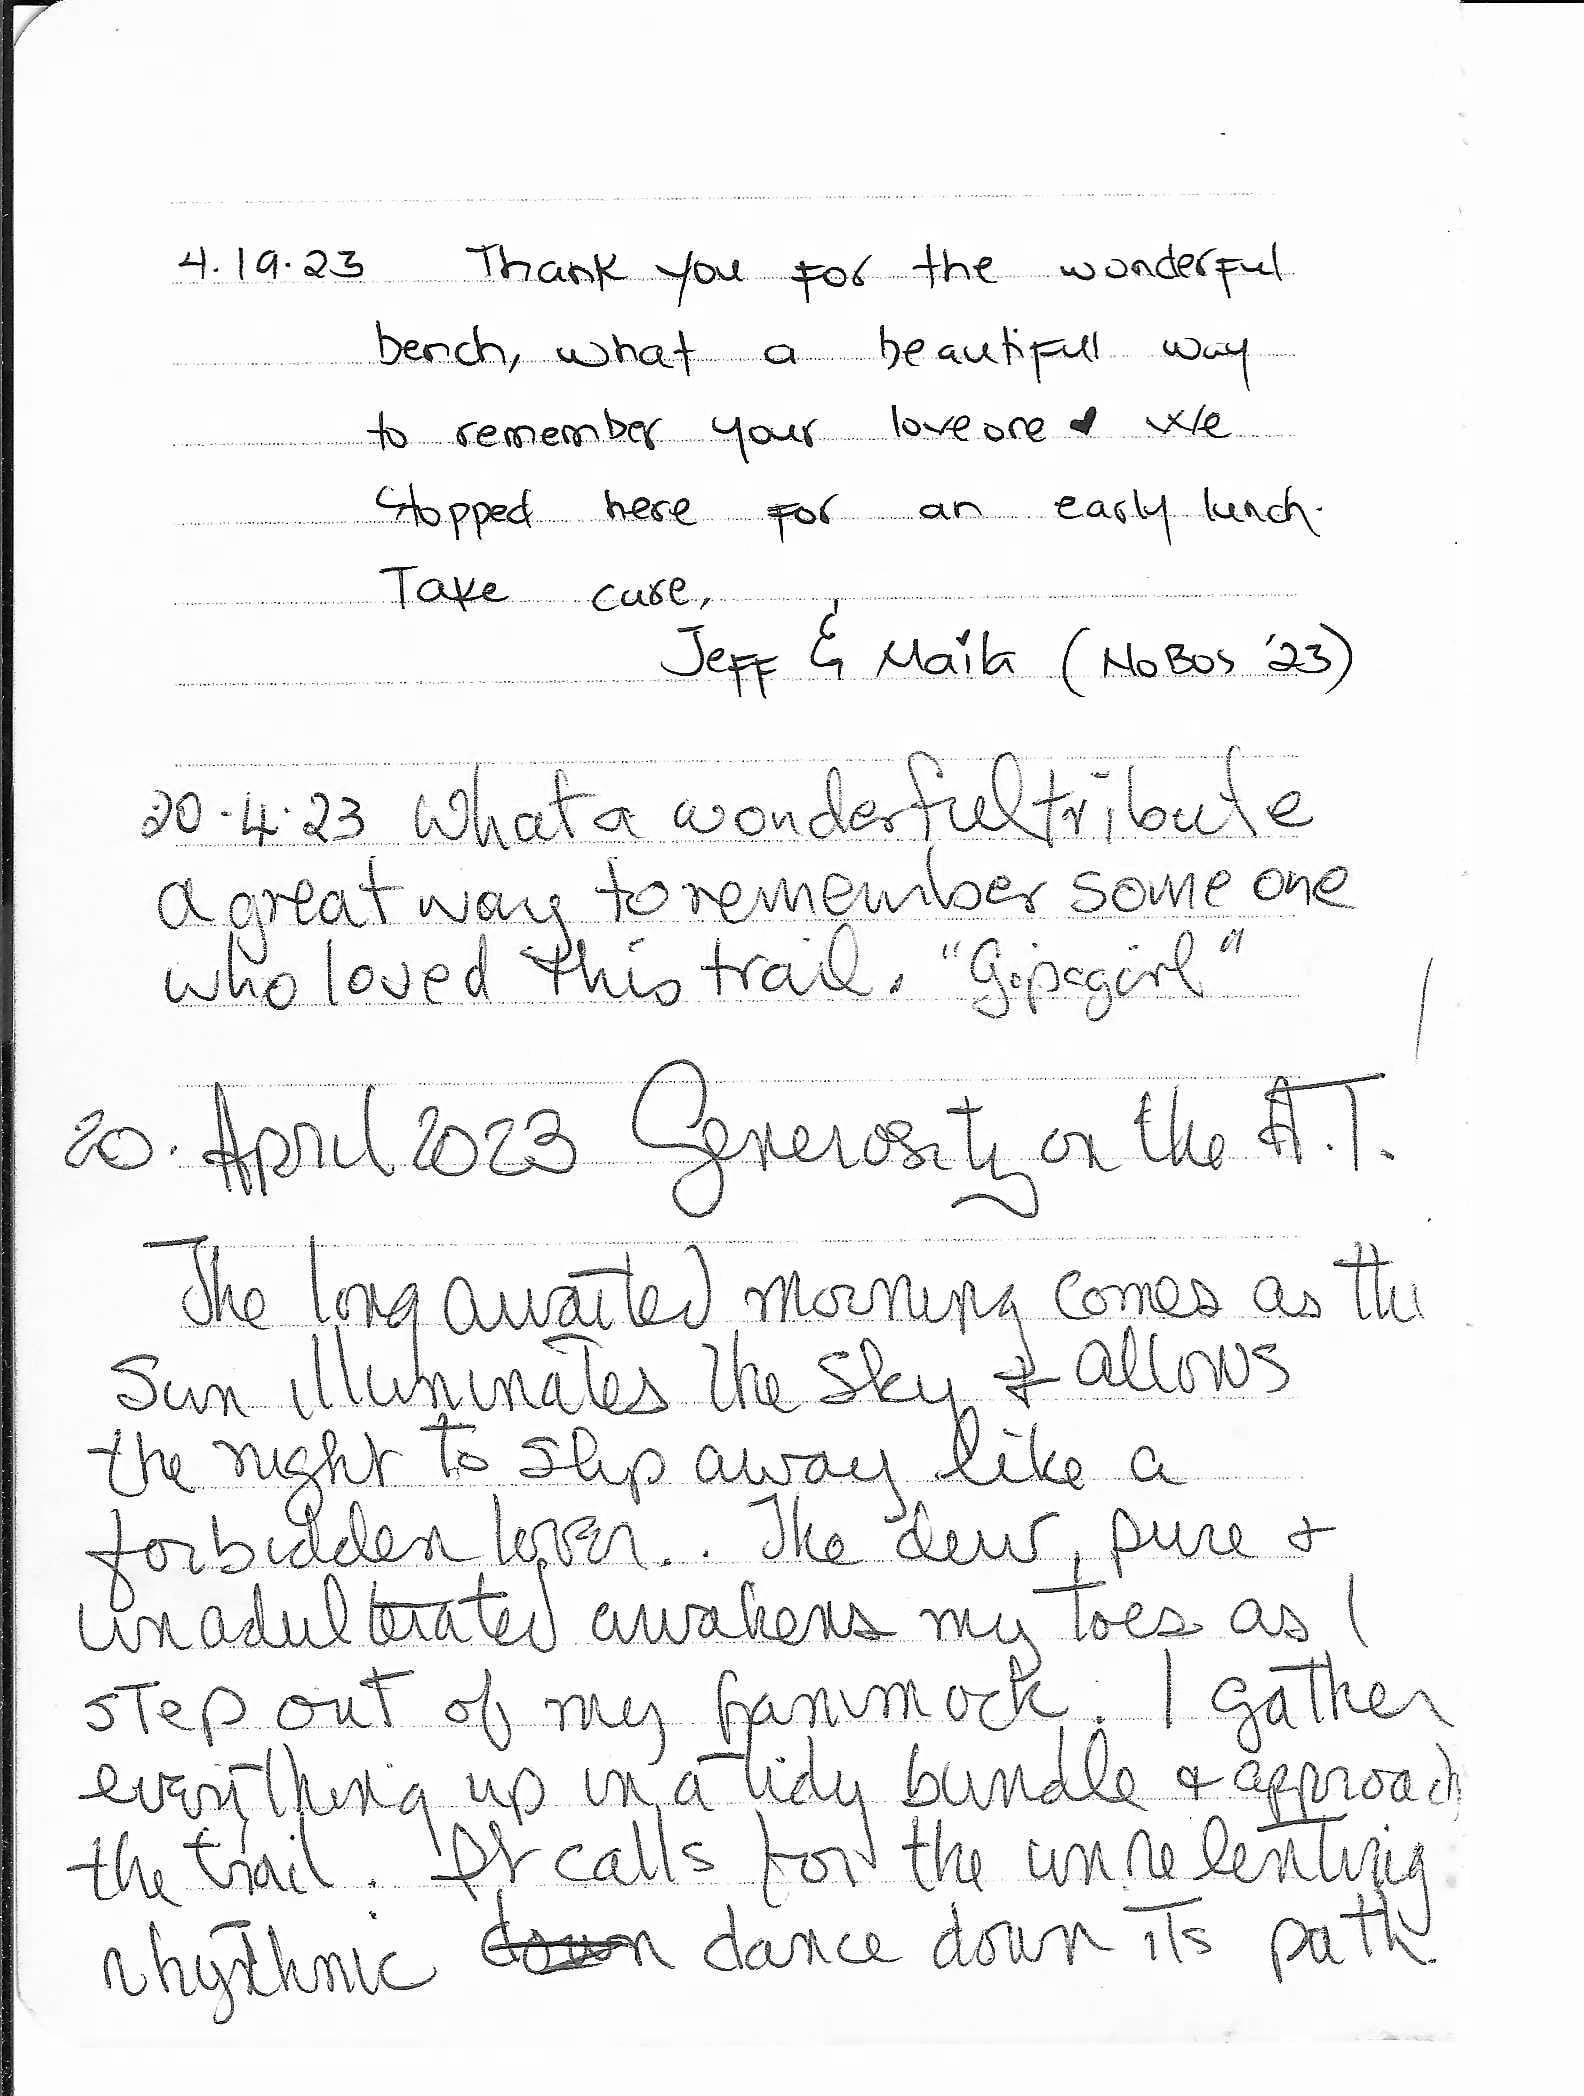 4.19.23 Thank you for the wonderful
bench, what a beautifull way
to remember your loveone ♥ We
stopped here for an early lunch.
Take care,
Jeff & Maik (NoBos '23)
20.4.23 What a wonderful tribute
a great way to remember some one
who loved this trail. "
20. April 2023 Generosity on the A.T.
The long awaited morning comes as the
Sun illuminates the sky & allows
the night to slip away like a
forbidden lover.. The dew, pure &
unadulterated awakens my toes as I
step out of my hammock. I gather
everything up in a tidy bundle & approach
the trail. It calls for the unrelenting
rhythmic down dance down its path.